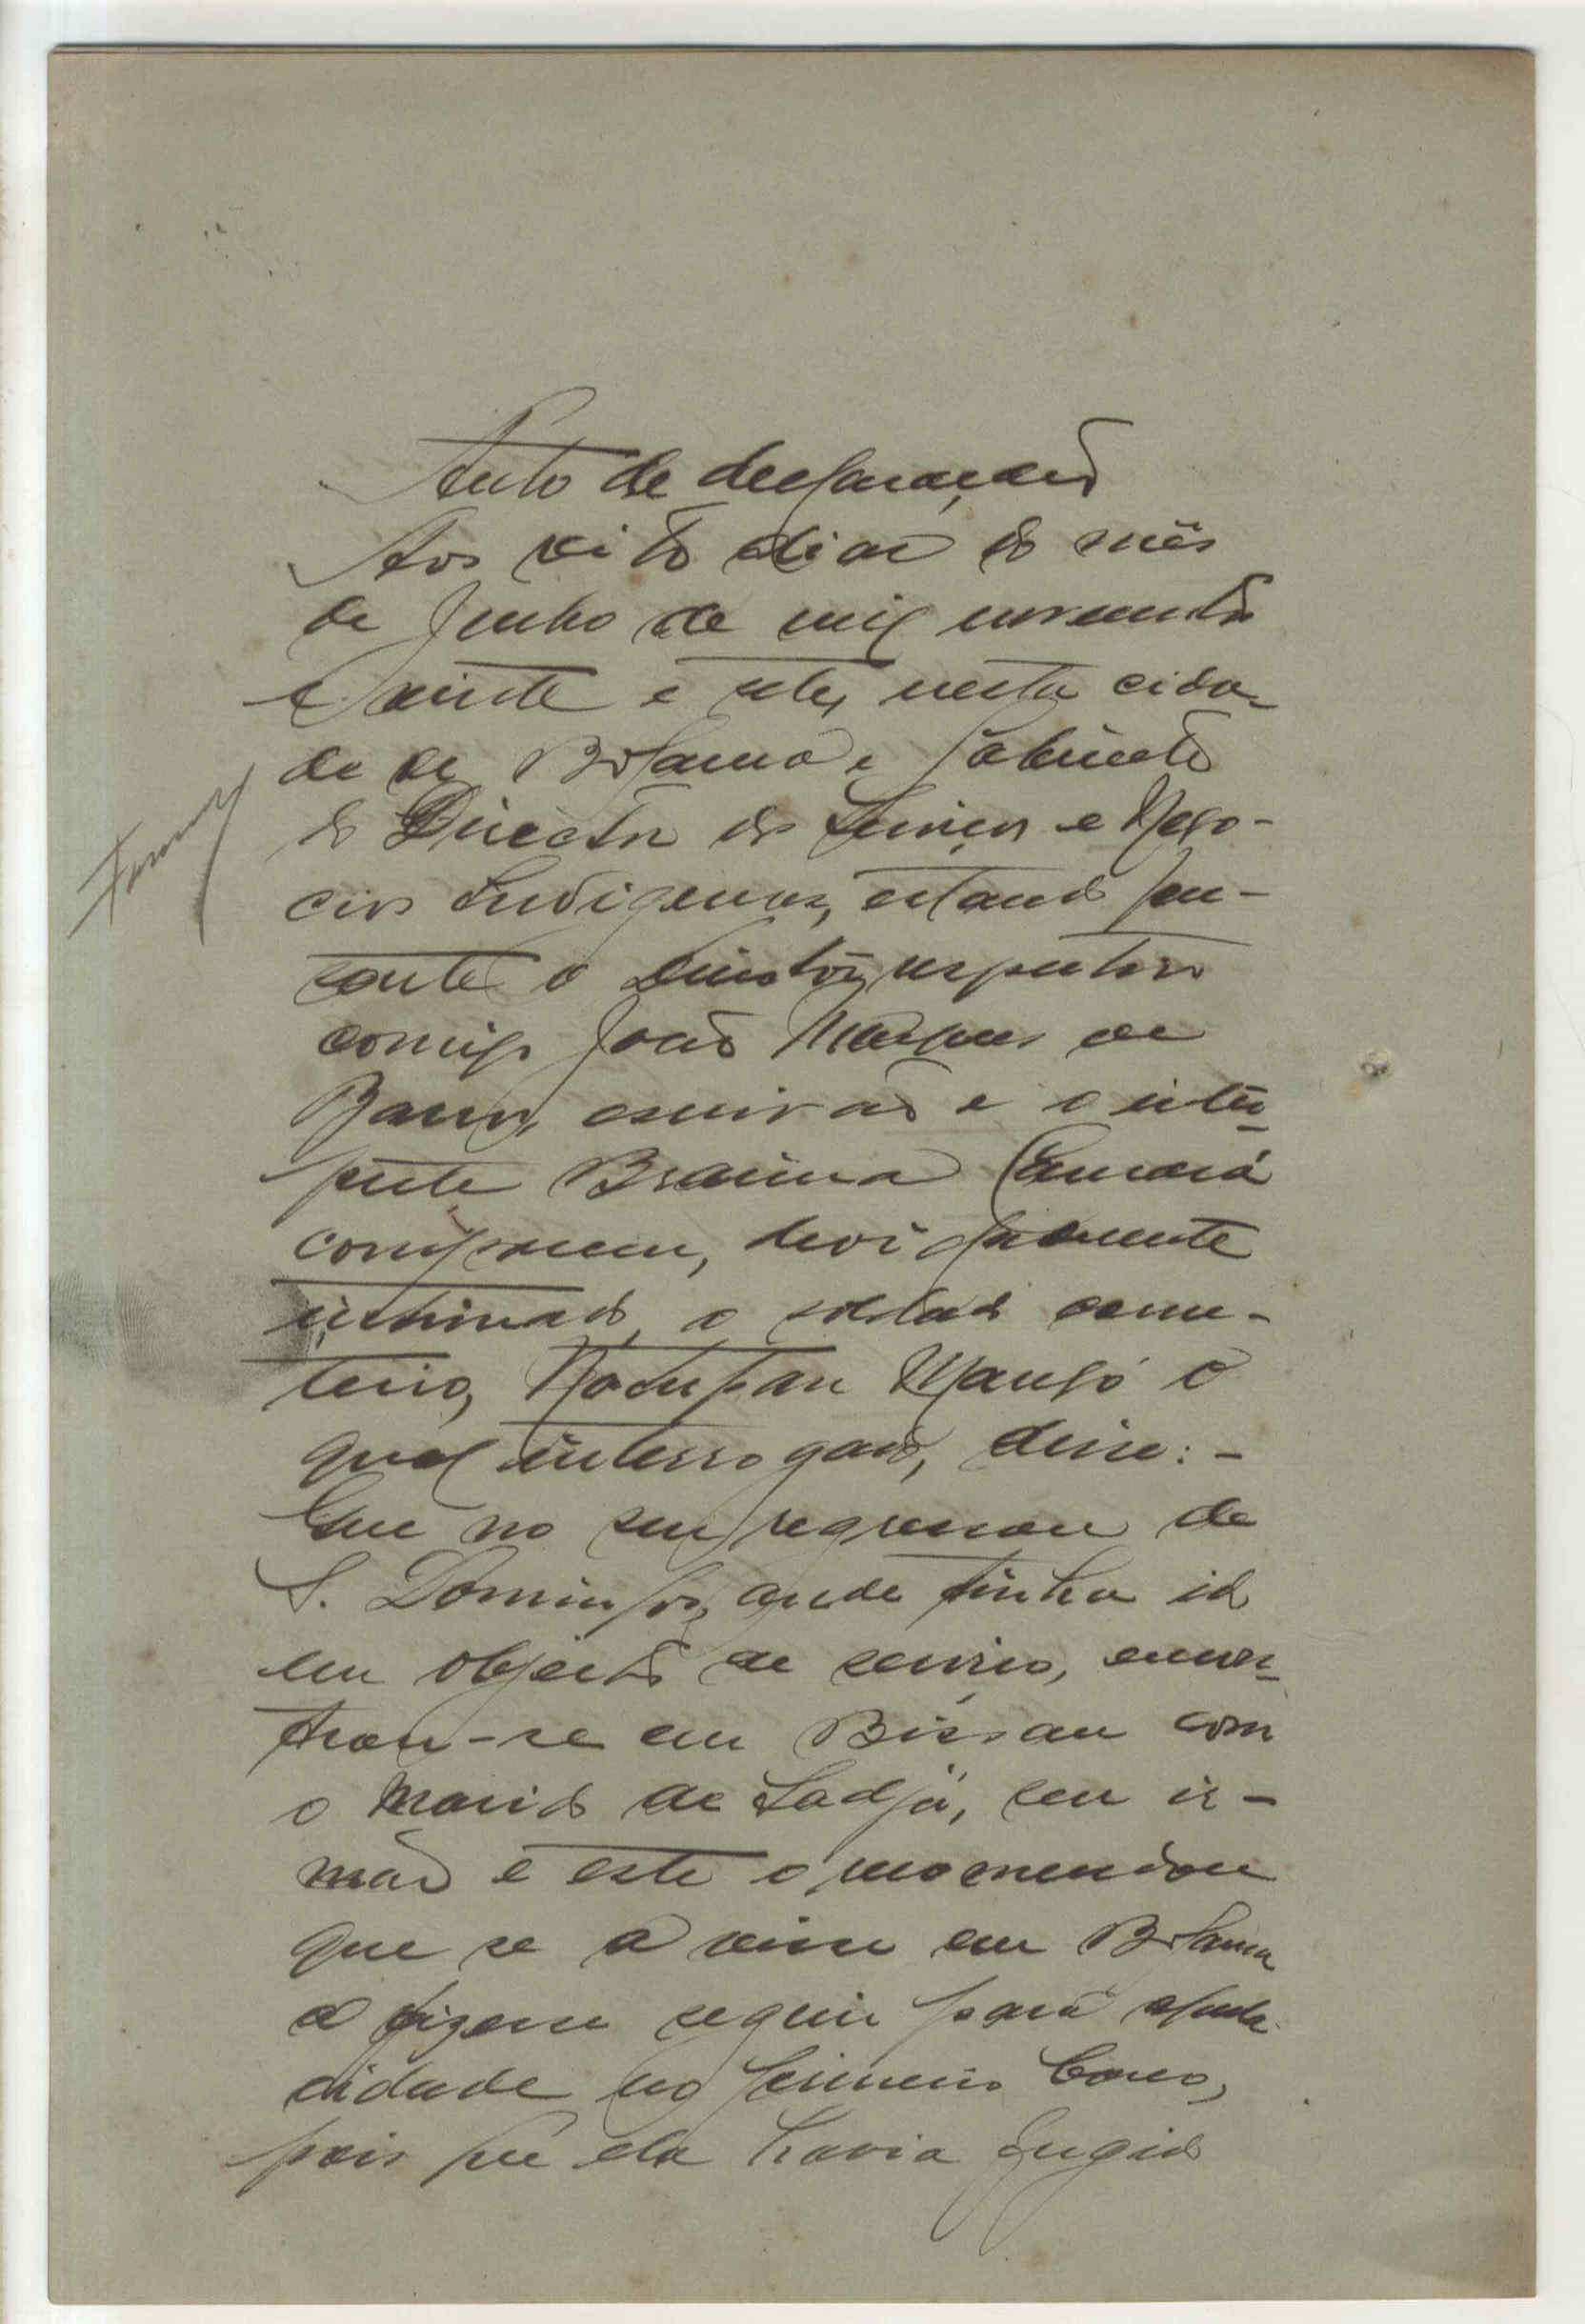 Auto de declaração
Aos oito dias do mês
de Junho de mil novecentos
e vinte e sete, nesta cida-
de de Bolama e Gabinete
do Director dos Serviços e Nego-
cios Indigenas, estando pre-
sente o Director respectivo
comigo João Marques de
Barros, escrivão e o inter-
prete Braima Camará
compareceu, devidamente
intimado, o soldado
qual interrogado, disse: -
Que no seu regresso de
S. Domingos, onde tinha ido
em objecto de serviço, encon-
trou-se em Bissau com
o marido de Sadjá, seu ir-
mão e este o recomendou
que se a visse em Bolama
a fizesse seguir para aquela
cidade no primeiro barco,
pois que ela havia fugido